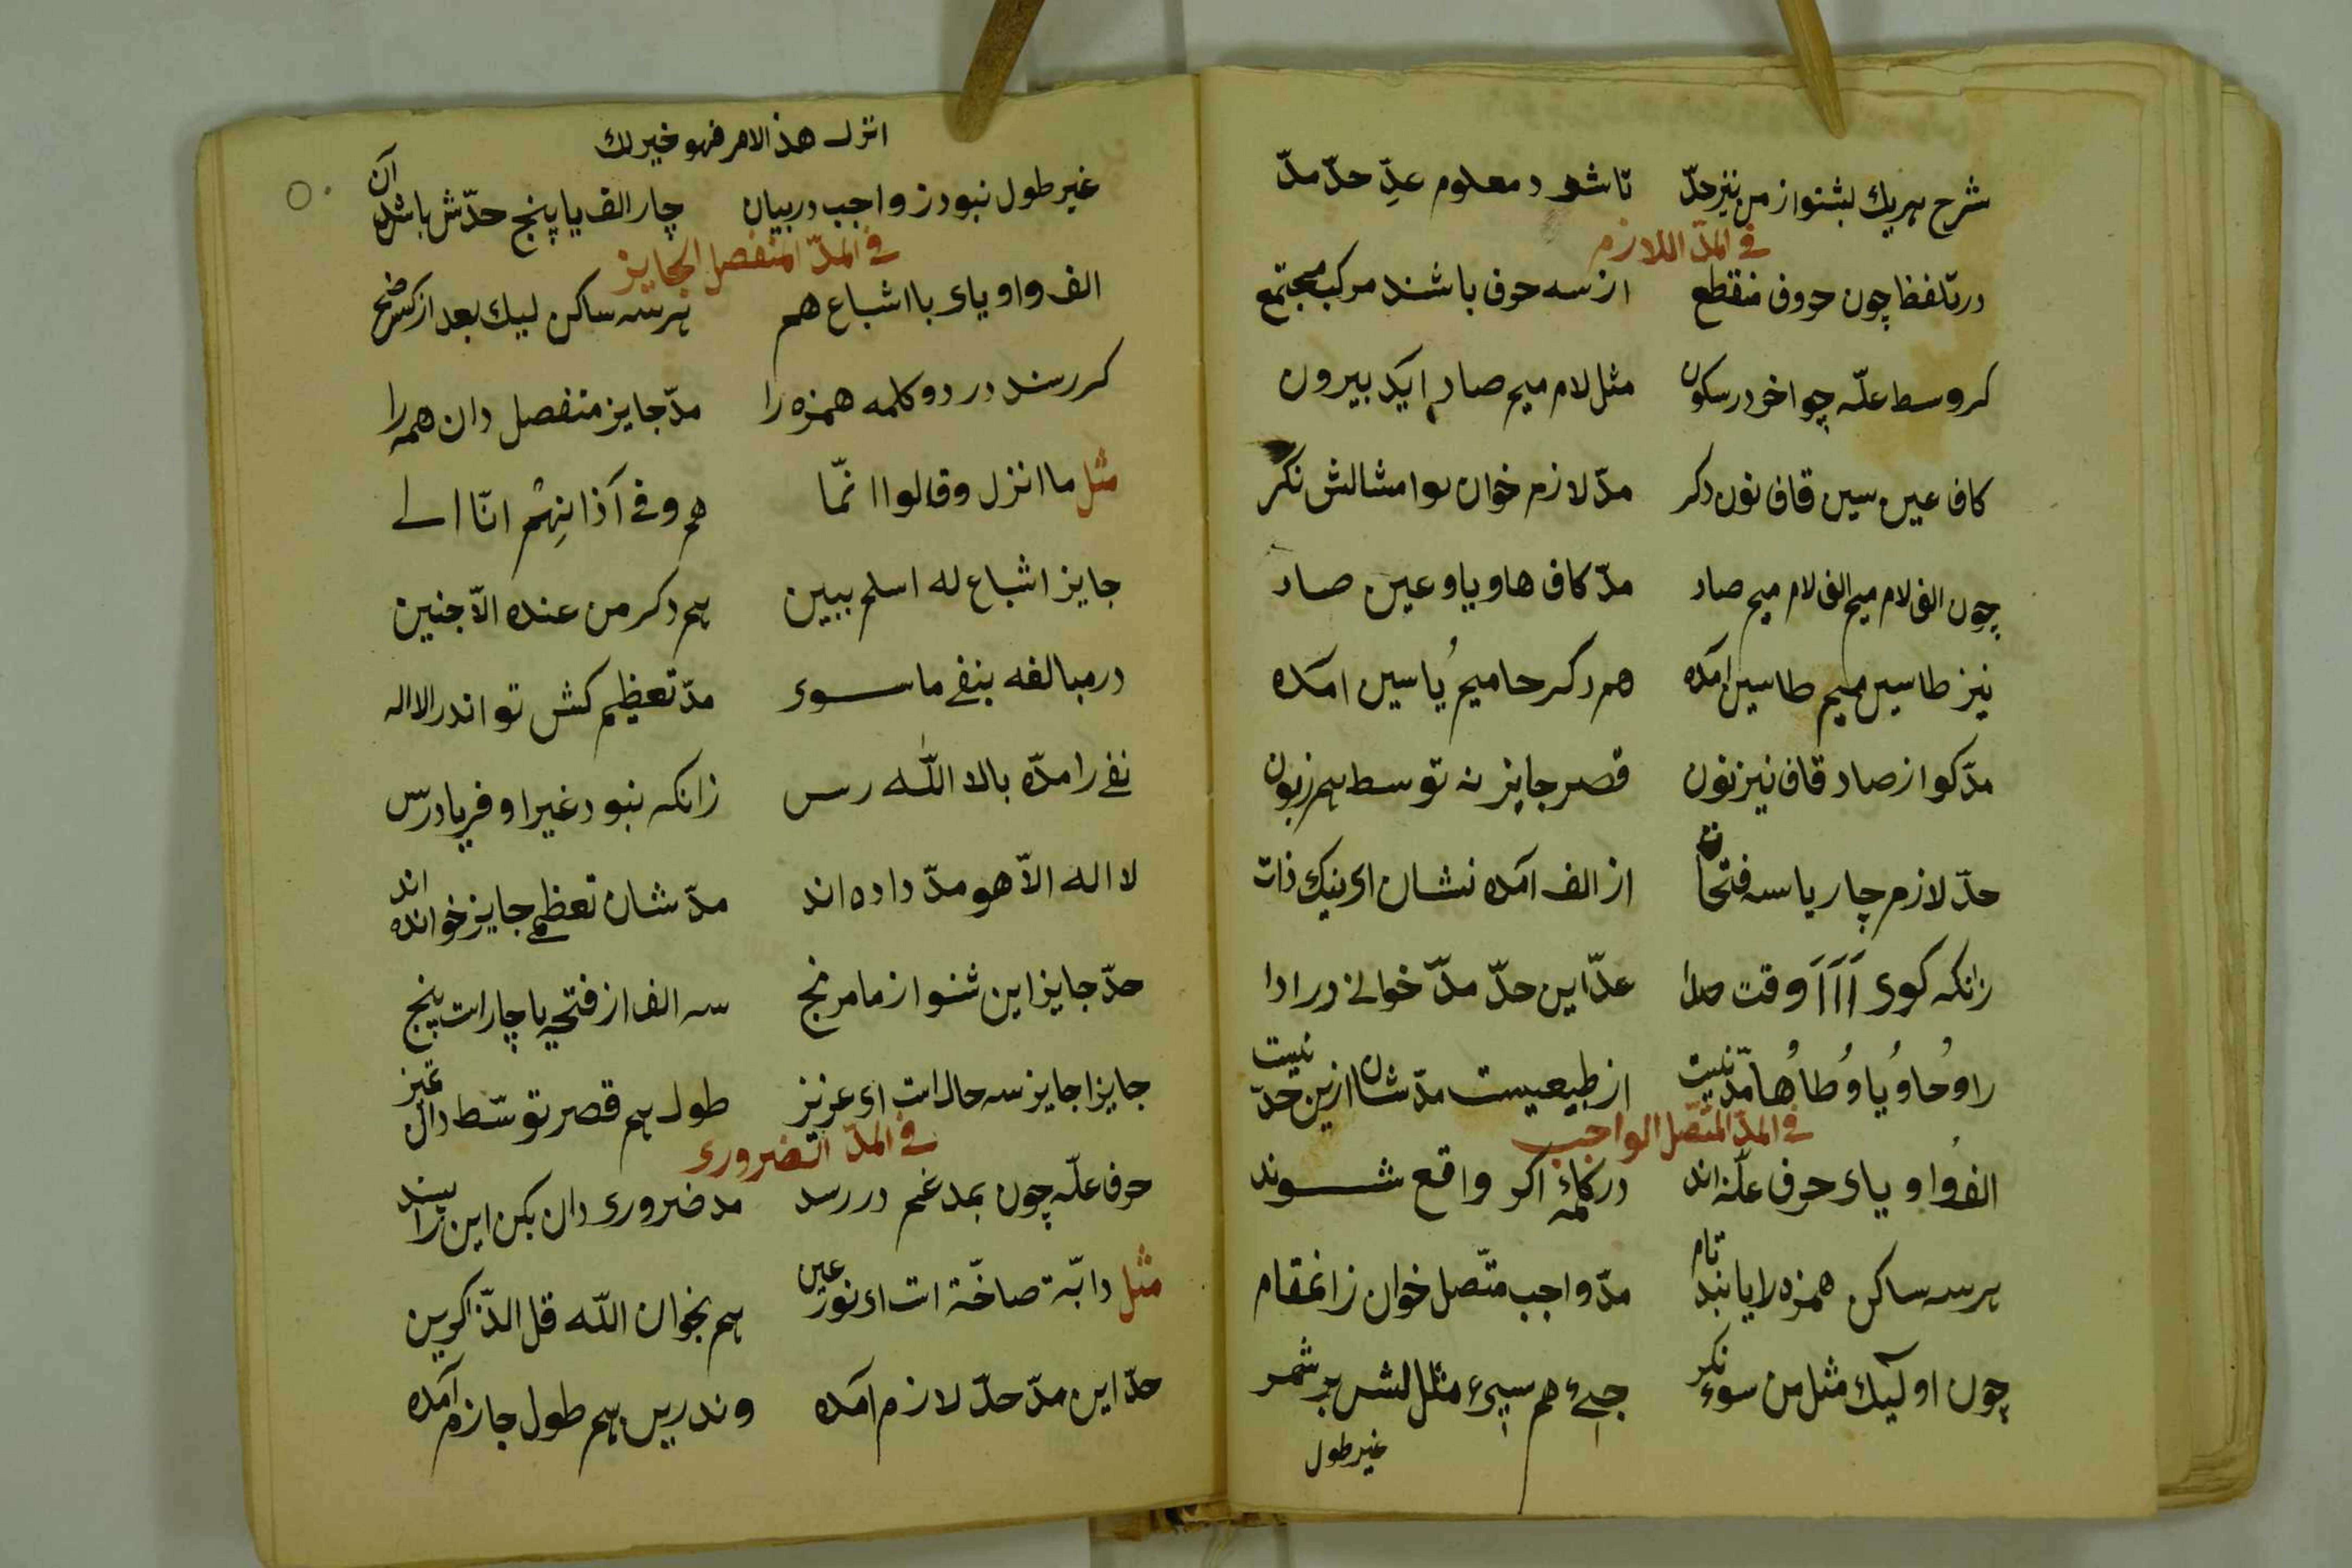 شرح هر یك بشنو از من نیز حدّ تا شود معلوم عدِّ حدّ مدّ
فی المدّ اللازم
در تلفظ چون حروف منقطع از سه حرف باشند مرکب مجتمع
کر وسط علّه چو اخر در سکون مثل لام میم صاد آید بیرون
کاف عین سین قاف نون دکر مدّ لازم خوان امثالش نکر
چون الف لام میم الف لام میم صاد مدّ کاف ها و یا و عین صاد
نیز طا سین میم طا سین آمده هم دکر حا میم یُا سین آمده
مدّ کو از صاد قاف نیز نون قصر جایز نه توسط هم زبون
حدّ لازم چار یا سه فتحات از الف آمده نشان ای نیک ذات
زانکه کوی اَاَاَاَ وقت عدّ این حدّ مدّ خوانی در ادا
را وُ حا وُ یا وُ طا وُ ها مدّ نیست از طبیعیست مدّشان ازین حدّ نیست
فی المدّ المتّصل الواجب
الف وُ او یای حرف علّه اند در کلمهٔ اکر واقع شوند
هر سه ساکن همزه را یابند تام مدّ واجب متّصل خوان زانمقام
چون اولیك مثل من سوء نکر جیء هم سیء مثل لشس بر شمر
غیر طول
اترك هذ الامر فهو خیر لك
غیر طول نبود ز واجب در بیان چار الف یا پنج حدّش باشد آن
فی المدّ المنفصل الجایز
الف و او یای با اشباع هم هر سه ساکن لیك بعد از کسر ضم
کر رسند در دو کلمه همزه را مدّ جایز منفصل دان همه را
مثل ما انزل و قالوا انّما هم و فی آذانهم انّا الی
جایز اشباع له اسلم ببین هم دکر من عنده الاّ جنین
در مبالغه بنفی ما سوی مدّ تعظیم کش تو اندر لا اله
نفی را مدّه بالا اللّٰه رس زانکه نبود غیر او فریادرس
لا اله الاّ هو مدّ داده اند مدّشان تعظیمی جایز خوانده اند
حدّ جایز این شنو از ما مرنج سه الف از فتحه یا چار است پنج
جایزا جایز سه حال است ای عزیز طول هم قصر توسّط دان تمیز
فی المدّ الضروری
حرف علّه چون بمدغم در رسد مد ضروری دان بکن این را سند
مثل دابّة صاخّة است ای نور عین هم بخوان اللّه قل الذّاکرین
حدّ این مدّ حدّ لازم آمده وندرین هم طول جازم آمده